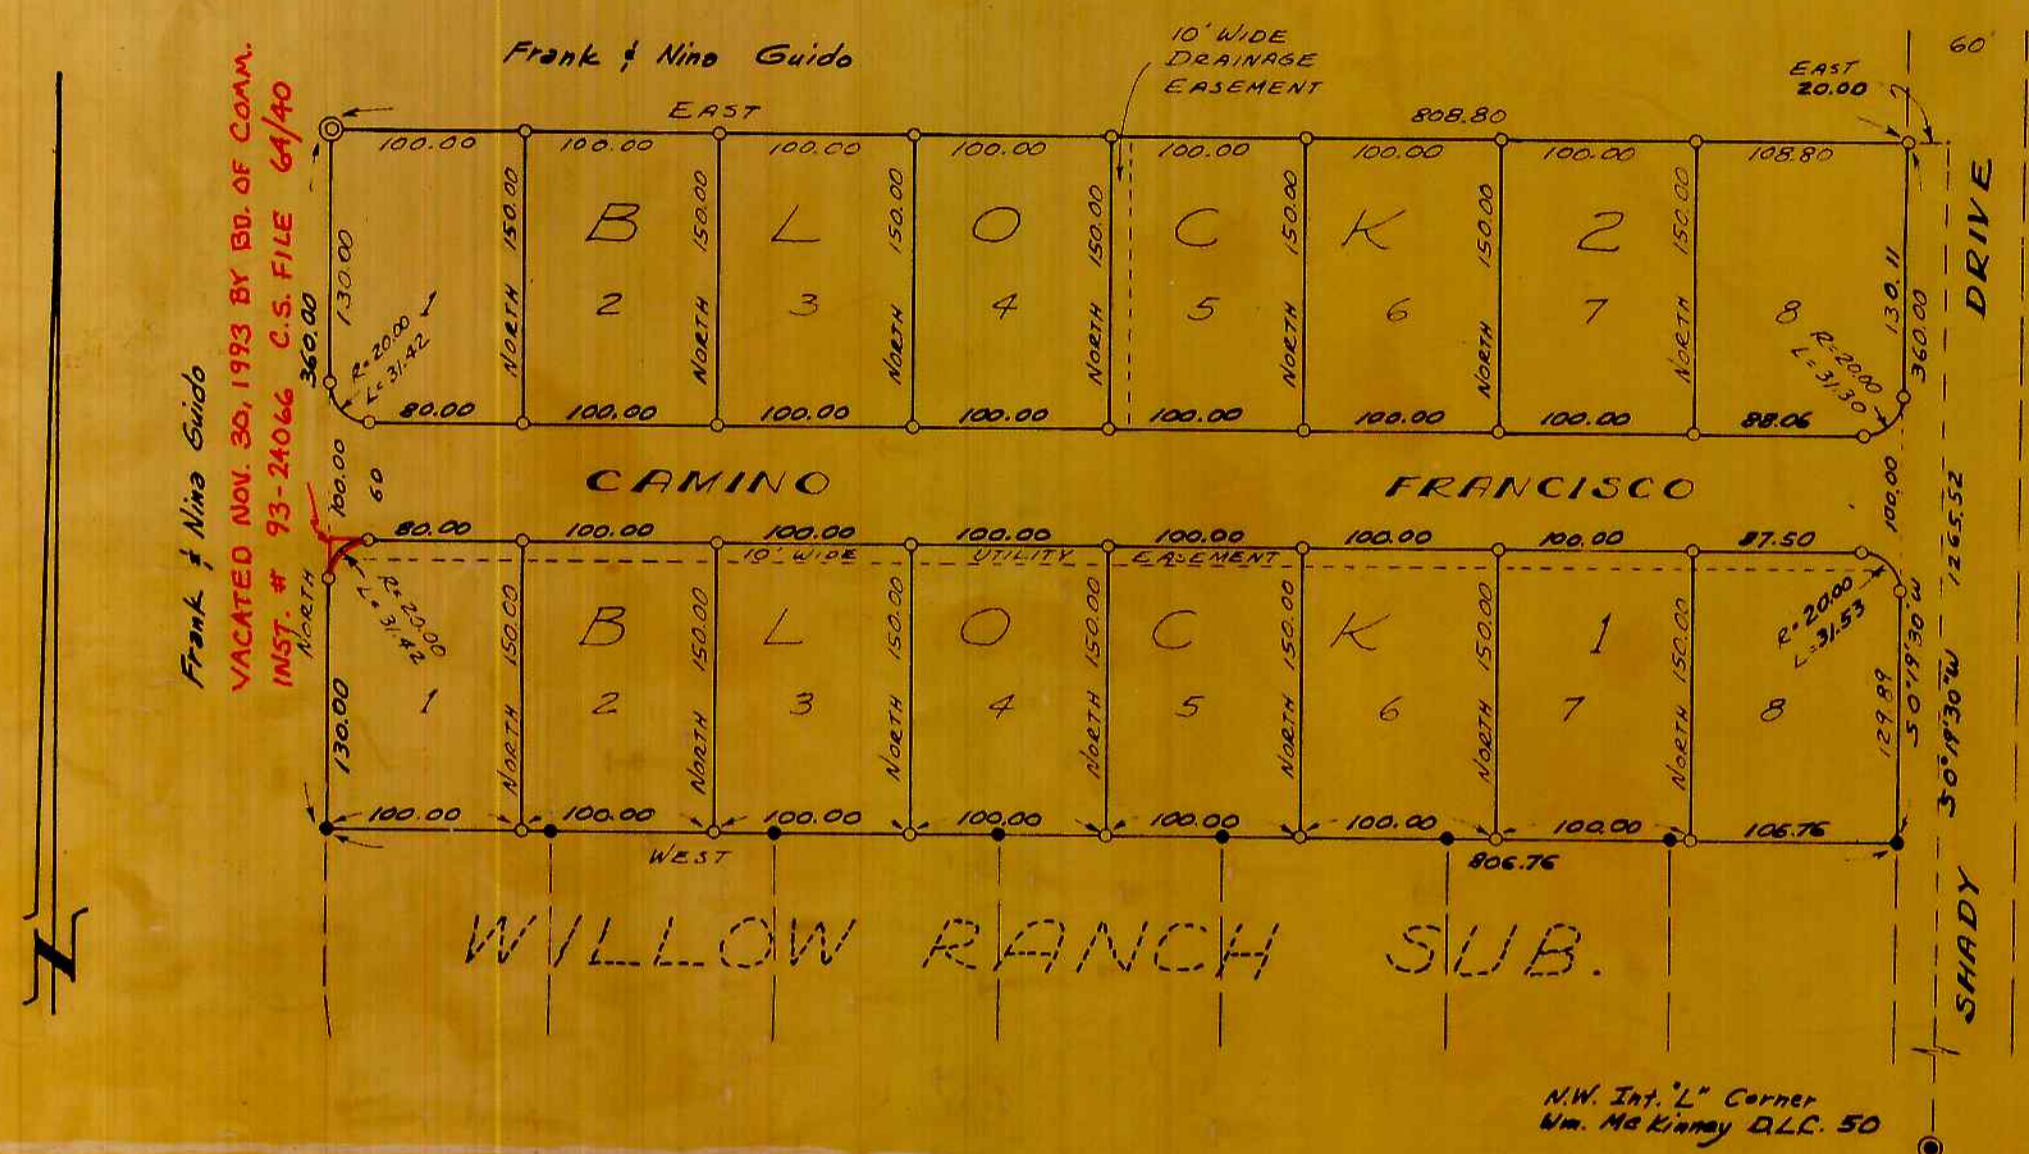 Frank & Nina Guido
10' WIDE
DRAINAGE
EASEMENT
60'
EAST
20.00
EAST
808.80
100.00 100.00 100.00 100.00 100.00 100.00 100.00 108.80
B L O C K 2
1 2 3 4 5 6 7 8
130.00
360.00
NORTH 150.00
NORTH 150.00
NORTH 150.00
NORTH 150.00
NORTH 150.00
NORTH 150.00
NORTH 150.00
130.11
360.00
R=20.00
L=31.42
R=20.00
L=31.30
80.00 100.00 100.00 100.00 100.00 100.00 100.00 88.06
Frank & Nina Guido
VACATED NOV. 30, 1993 BY BD. OF COMM.
INST. # 93-24066 C.S. FILE 64/40
100.00
60
CAMINO FRANCISCO
100.00
80.00 100.00 100.00 100.00 100.00 100.00 100.00 87.50
10' WIDE UTILITY EASEMENT
NORTH
R=20.00
L=31.42
R=20.00
L=31.53
B L O C K 1
1 2 3 4 5 6 7 8
130.00
NORTH 150.00
NORTH 150.00
NORTH 150.00
NORTH 150.00
NORTH 150.00
NORTH 150.00
NORTH 150.00
129.89
S0°19'30"W
S0°19'30"W 1265.52
100.00 100.00 100.00 100.00 100.00 100.00 100.00 106.76
WEST
806.76
SHADY DRIVE
WILLOW RANCH SUB.
N.W. Int. "L" Corner
Wm. McKinney D.L.C. 50